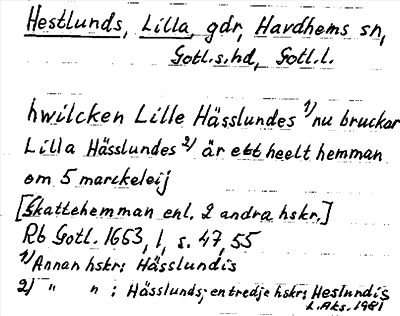 Hestlunds, Lilla, gdr, Havdhems sn,
Gotl.s.hd, Gotl.l.
hwilcken Lille Hässlundes 1) nu bruckar
Lilla Hässlundes 2) är ett heelt hemman
om 5 marckeleij
[Skattehemman enl. 2 andra hskr.]
Rb Gotl. 1653, 1, s. 47, 55
1) Annan hskr: Hässlundis
2) " " : Hässlunds; en tredje hskr: Heslundis
L.Aks. 1981